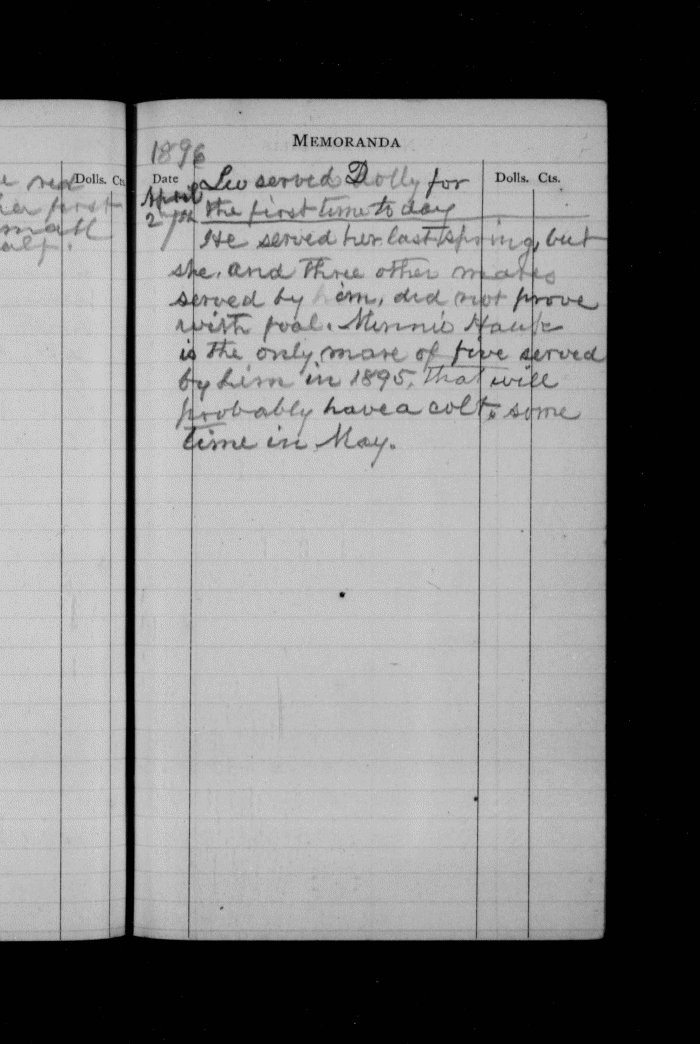 e red
her first
small
alf.
Dolls. Cts
MEMORANDA
1896
Date
Dolls. Cts.
April Leo served Dolly for
27th the first time to day
He served her last spring, but
she, and three other mares
served by him, did not prove
with foal. Minnie Hauk
is the only mare of five served
by him in 1895, that will
probably have a colt, some
time in May.